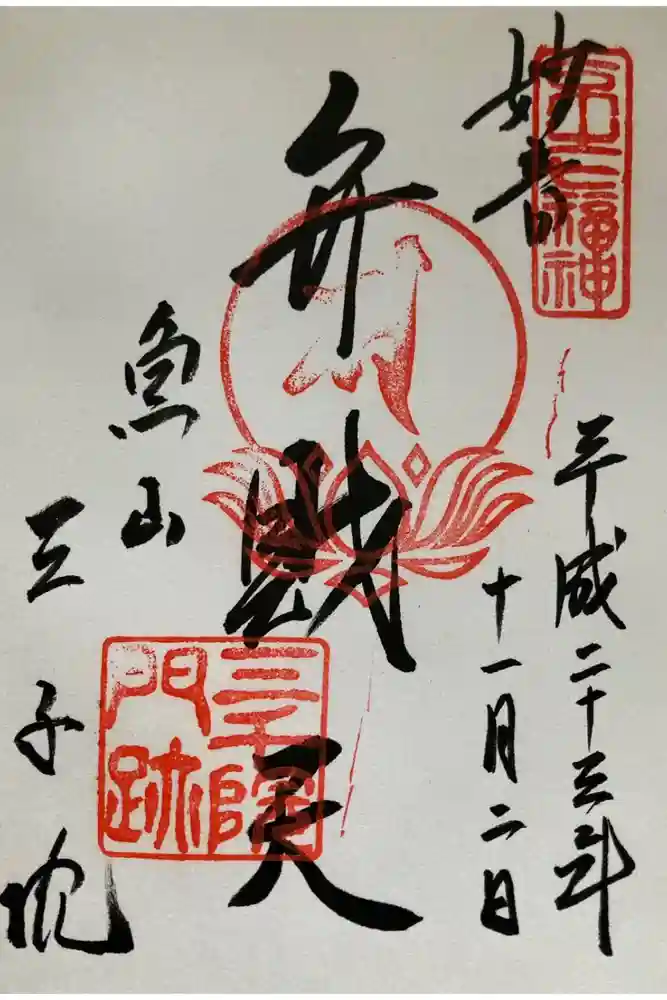 京之七福神
妙音
平成二十三年
十一月二日
弁財天
三千院
門跡
魚山
三千院